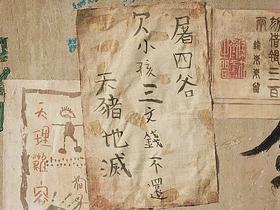 屠四谷
欠小孩三文錢不還
天豬地滅
天理難容